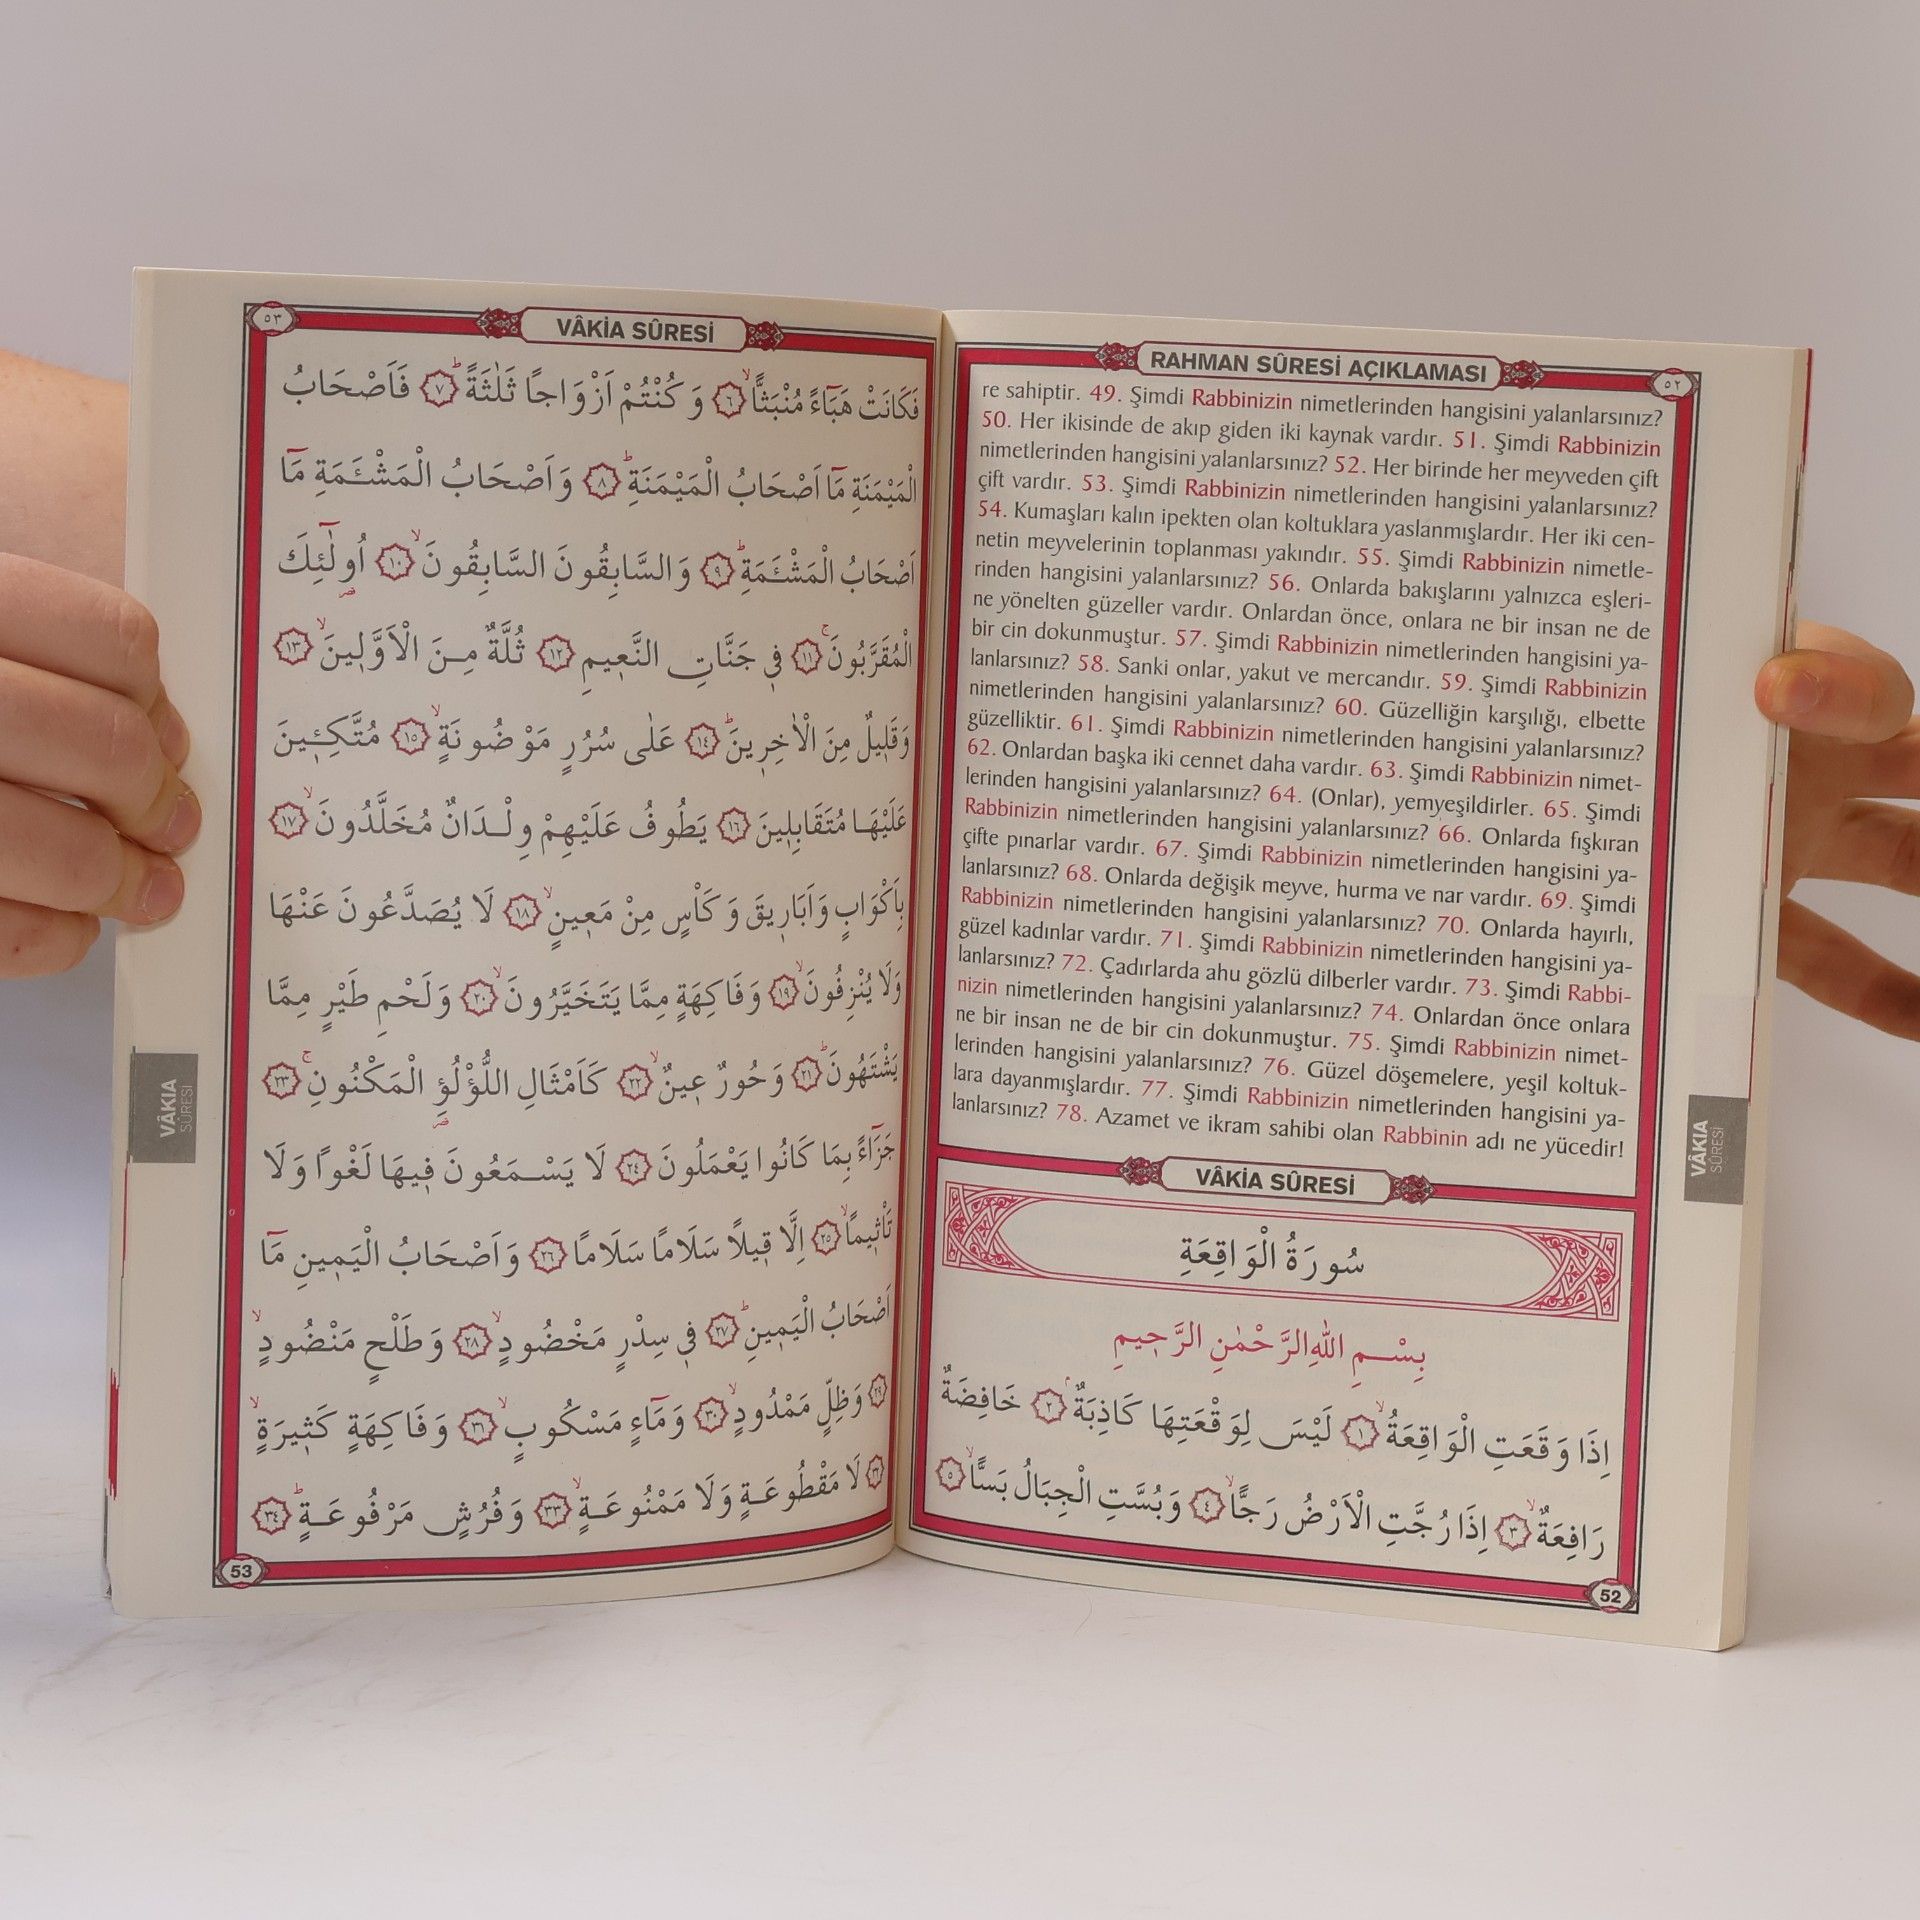 RAHMAN SÛRESİ AÇIKLAMASI
٥٢
re sahiptir. 49. Şimdi Rabbinizin nimetlerinden hangisini yalanlarsınız?
50. Her ikisinde de akıp giden iki kaynak vardır. 51. Şimdi Rabbinizin
nimetlerinden hangisini yalanlarsınız? 52. Her birinde her meyveden çift
çift vardır. 53. Şimdi Rabbinizin nimetlerinden hangisini yalanlarsınız?
54. Kumaşları kalın ipekten olan koltuklara yaslanmışlardır. Her iki cen-
netin meyvelerinin toplanması yakındır. 55. Şimdi Rabbinizin nimetle-
rinden hangisini yalanlarsınız? 56. Onlarda bakışlarını yalnızca eşleri-
ne yönelten güzeller vardır. Onlardan önce, onlara ne bir insan ne de
bir cin dokunmuştur. 57. Şimdi Rabbinizin nimetlerinden hangisini ya-
lanlarsınız? 58. Sanki onlar, yakut ve mercandır. 59. Şimdi Rabbinizin
nimetlerinden hangisini yalanlarsınız? 60. Güzelliğin karşılığı, elbette
güzelliktir. 61. Şimdi Rabbinizin nimetlerinden hangisini yalanlarsınız?
62. Onlardan başka iki cennet daha vardır. 63. Şimdi Rabbinizin nimet-
lerinden hangisini yalanlarsınız? 64. (Onlar), yemyeşildirler. 65. Şimdi
Rabbinizin nimetlerinden hangisini yalanlarsınız? 66. Onlarda fışkıran
çifte pınarlar vardır. 67. Şimdi Rabbinizin nimetlerinden hangisini ya-
lanlarsınız? 68. Onlarda değişik meyve, hurma ve nar vardır. 69. Şimdi
Rabbinizin nimetlerinden hangisini yalanlarsınız? 70. Onlarda hayırlı,
güzel kadınlar vardır. 71. Şimdi Rabbinizin nimetlerinden hangisini ya-
lanlarsınız? 72. Çadırlarda ahu gözlü dilberler vardır. 73. Şimdi Rabbi-
nizin nimetlerinden hangisini yalanlarsınız? 74. Onlardan önce onlara
ne bir insan ne de bir cin dokunmuştur. 75. Şimdi Rabbinizin nimet-
lerinden hangisini yalanlarsınız? 76. Güzel döşemelere, yeşil koltuk-
lara dayanmışlardır. 77. Şimdi Rabbinizin nimetlerinden hangisini ya-
lanlarsınız? 78. Azamet ve ikram sahibi olan Rabbinin adı ne yücedir!
VÂKİA SÛRESİ
سُورَةُ الْوَاقِعَةِ
بِسْمِ اللهِ الرَّحْمٰنِ الرَّحِيمِ
اِذَا وَقَعَتِ الْوَاقِعَةُ ﴿١﴾ لَيْسَ لِوَقْعَتِهَا كَاذِبَةٌ ﴿٢﴾ خَافِضَةٌ
رَافِعَةٌ ﴿٣﴾ اِذَا رُجَّتِ الْاَرْضُ رَجًّا ﴿٤﴾ وَبُسَّتِ الْجِبَالُ بَسًّا ﴿٥﴾
52
VÂKIA
SÛRESİ
VÂKİA SÛRESİ
٥٣
فَكَانَتْ هَبَٓاءً مُنْبَثًّا ﴿٦﴾ وَكُنْتُمْ اَزْوَاجًا ثَلٰثَةً ﴿٧﴾ فَاَصْحَابُ
الْمَيْمَنَةِ مَٓا اَصْحَابُ الْمَيْمَنَةِ ﴿٨﴾ وَاَصْحَابُ الْمَشْـَٔمَةِ مَٓا
اَصْحَابُ الْمَشْـَٔمَةِ ﴿٩﴾ وَالسَّابِقُونَ السَّابِقُونَ ﴿١٠﴾ اُولٰٓئِكَ
الْمُقَرَّبُونَ ﴿١١﴾ فِي جَنَّاتِ النَّعِيمِ ﴿١٢﴾ ثُلَّةٌ مِنَ الْاَوَّلِينَ ﴿١٣﴾
وَقَلِيلٌ مِنَ الْاٰخِرِينَ ﴿١٤﴾ عَلٰى سُرُرٍ مَوْضُونَةٍ ﴿١٥﴾ مُتَّكِـِٔينَ
عَلَيْهَا مُتَقَابِلِينَ ﴿١٦﴾ يَطُوفُ عَلَيْهِمْ وِلْدَانٌ مُخَلَّدُونَ ﴿١٧﴾
بِاَكْوَابٍ وَاَبَارِيقَ وَكَأْسٍ مِنْ مَعِينٍ ﴿١٨﴾ لَا يُصَدَّعُونَ عَنْهَا
وَلَا يُنْزِفُونَ ﴿١٩﴾ وَفَاكِهَةٍ مِمَّا يَتَخَيَّرُونَ ﴿٢٠﴾ وَلَحْمِ طَيْرٍ مِمَّا
يَشْتَهُونَ ﴿٢١﴾ وَحُورٌ عِينٌ ﴿٢٢﴾ كَاَمْثَالِ اللُّؤْلُؤِ الْمَكْنُونِ ﴿٢٣﴾
جَزَٓاءً بِمَا كَانُوا يَعْمَلُونَ ﴿٢٤﴾ لَا يَسْمَعُونَ فِيهَا لَغْوًا وَلَا
تَأْثِيمًا ﴿٢٥﴾ اِلَّا قِيلًا سَلَامًا سَلَامًا ﴿٢٦﴾ وَاَصْحَابُ الْيَمِينِ مَٓا
اَصْحَابُ الْيَمِينِ ﴿٢٧﴾ فِي سِدْرٍ مَخْضُودٍ ﴿٢٨﴾ وَطَلْحٍ مَنْضُودٍ
﴿٢٩﴾ وَظِلٍّ مَمْدُودٍ ﴿٣٠﴾ وَمَٓاءٍ مَسْكُوبٍ ﴿٣١﴾ وَفَاكِهَةٍ كَثِيرَةٍ
﴿٣٢﴾ لَا مَقْطُوعَةٍ وَلَا مَمْنُوعَةٍ ﴿٣٣﴾ وَفُرُشٍ مَرْفُوعَةٍ ﴿٣٤﴾
53
VÂKIA
SÛRESİ